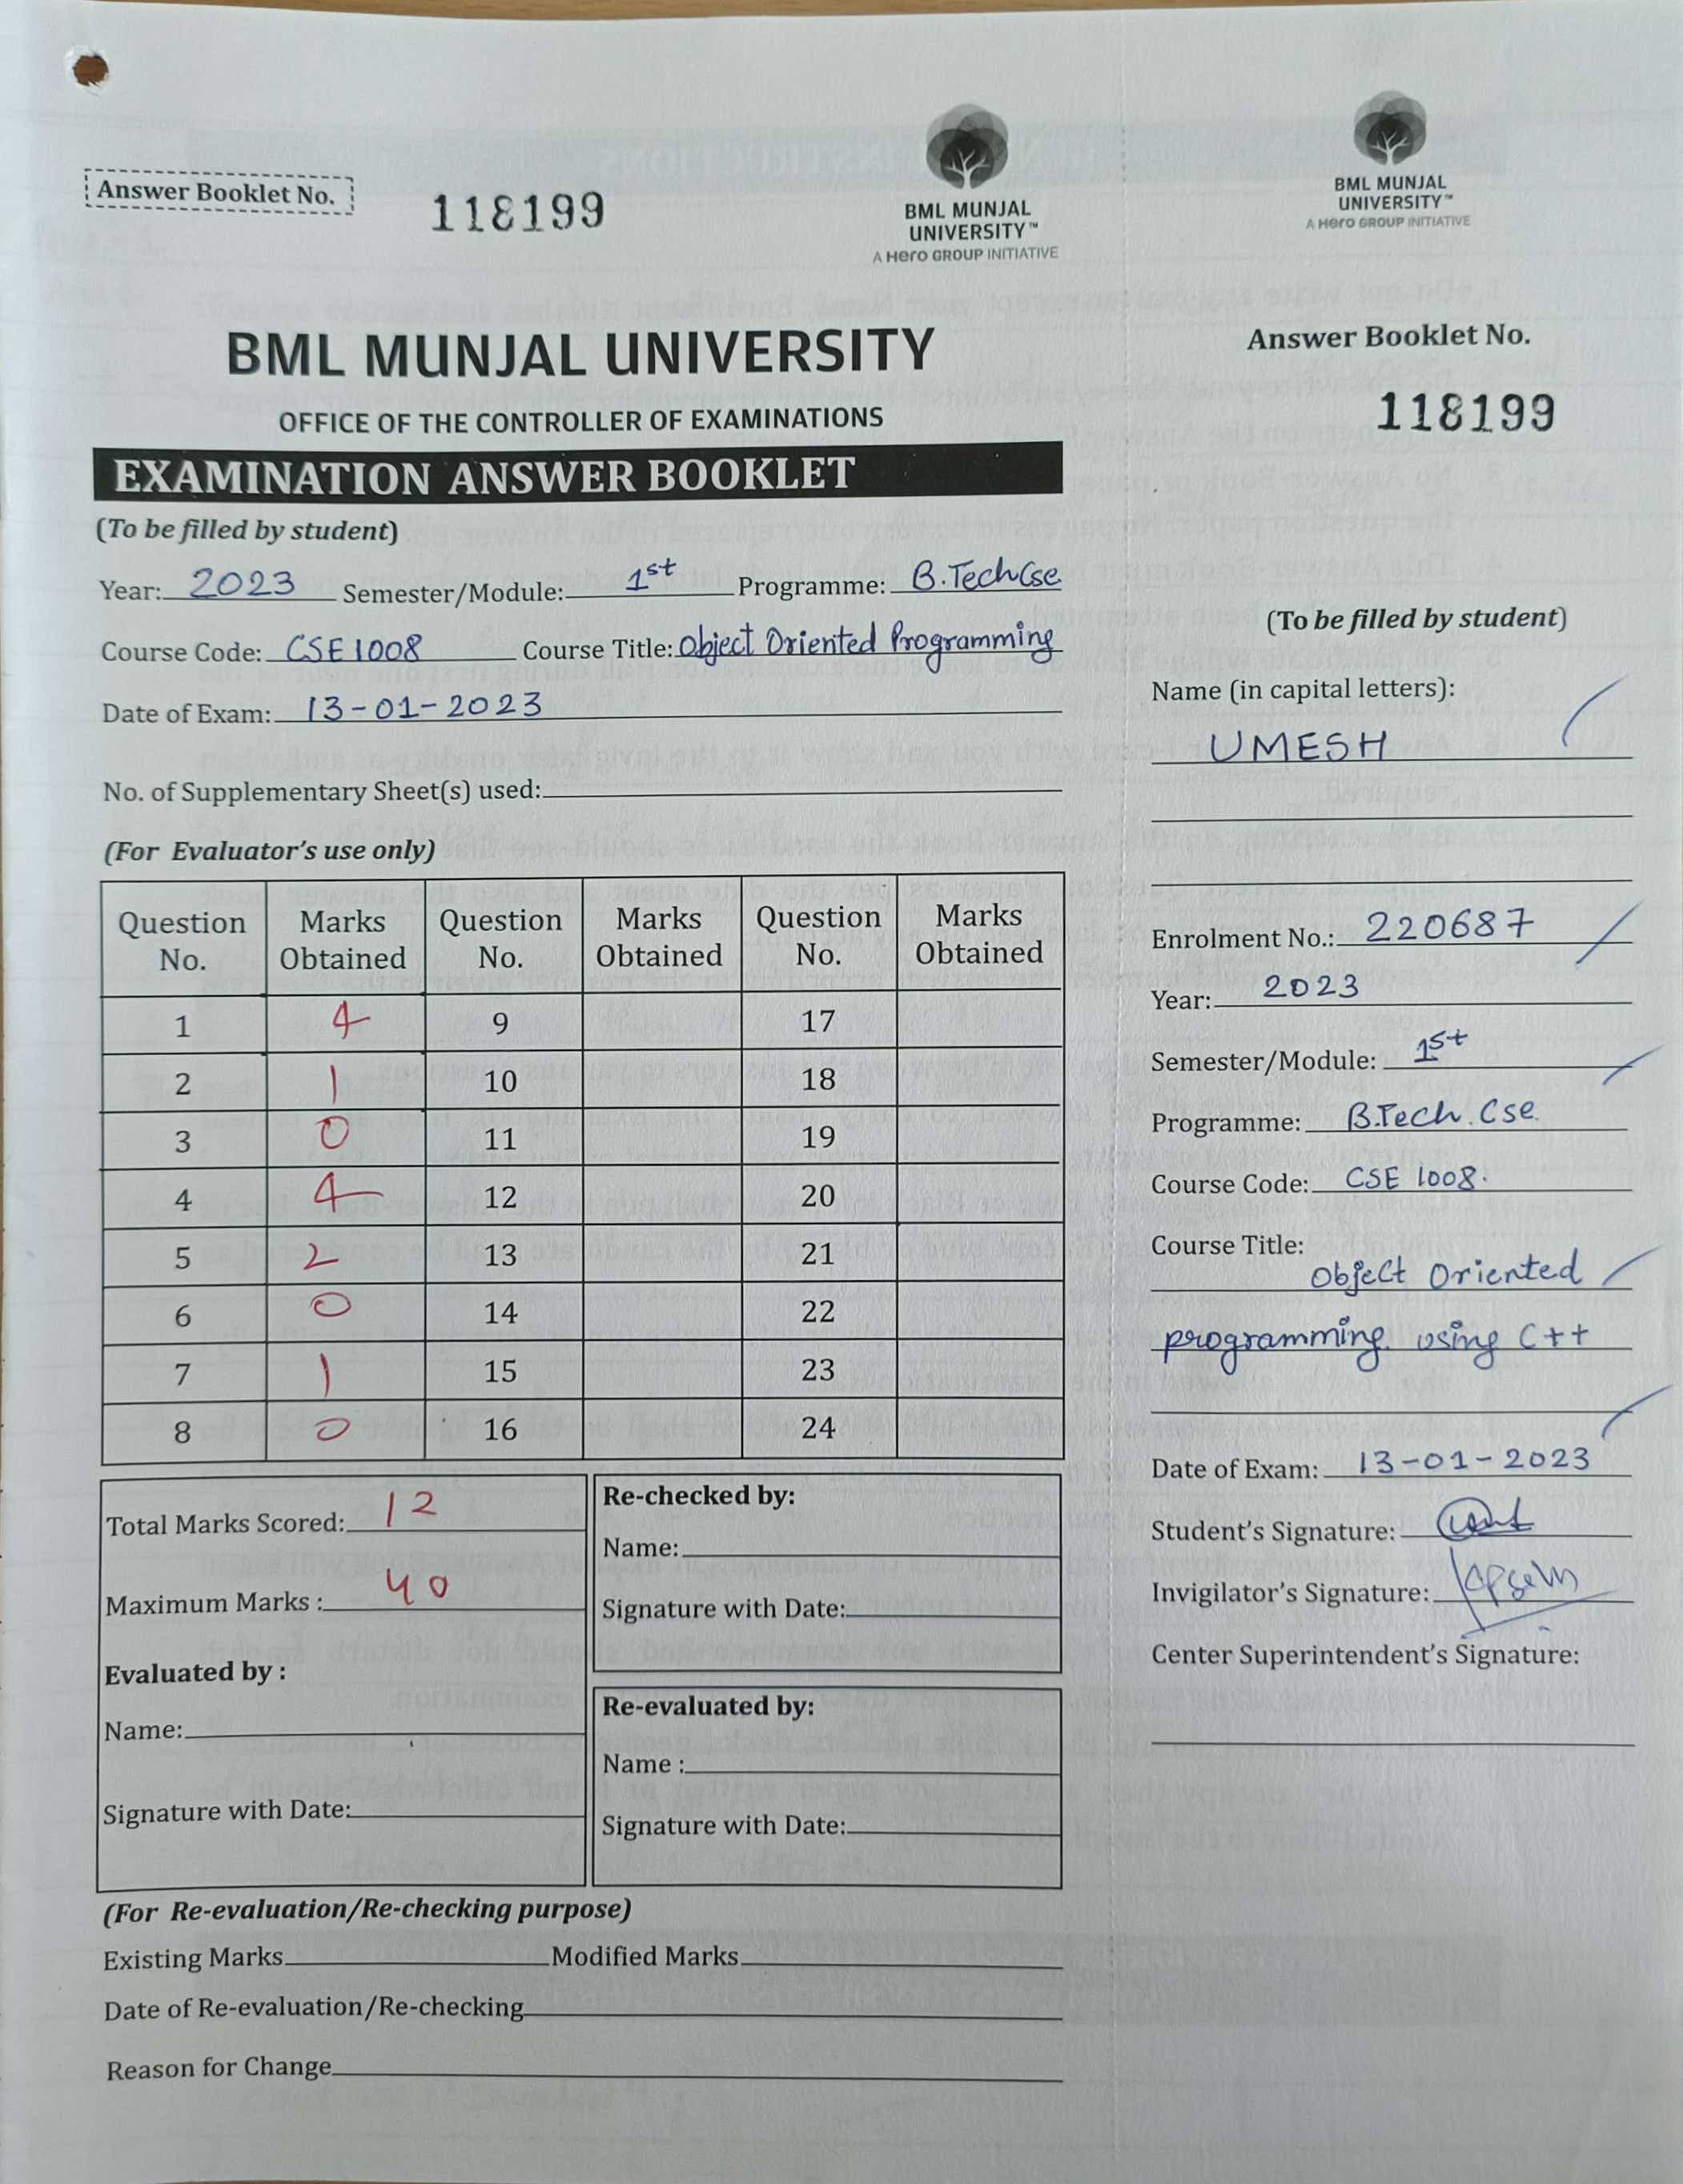 Answer Booklet No. 118199
BML MUNJAL
UNIVERSITY™
A Hero GROUP INITIATIVE
BML MUNJAL UNIVERSITY
OFFICE OF THE CONTROLLER OF EXAMINATIONS
EXAMINATION ANSWER BOOKLET
(To be filled by student)
Year: 2023 Semester/Module: 1st Programme: B.Tech Cse
Course Code: CSE1008 Course Title: Object Oriented Programming
Date of Exam: 13-01-2023
No. of Supplementary Sheet(s) used:
(For Evaluator's use only)
Question No. Marks Obtained Question No. Marks Obtained Question No. Marks Obtained
1 4 9 17
2 1 10 18
3 0 11 19
4 4 12 20
5 2 13 21
6 0 14 22
7 1 15 23
8 0 16 24
Total Marks Scored: 12
Maximum Marks : 40
Evaluated by :
Name:
Signature with Date:
Re-checked by:
Name:
Signature with Date:
Re-evaluated by:
Name :
Signature with Date:
(For Re-evaluation/Re-checking purpose)
Existing Marks Modified Marks
Date of Re-evaluation/Re-checking
Reason for Change
BML MUNJAL
UNIVERSITY™
A Hero GROUP INITIATIVE
Answer Booklet No.
118199
(To be filled by student)
Name (in capital letters):
UMESH
Enrolment No.: 220687
Year: 2023
Semester/Module: 1st
Programme: B.Tech. Cse.
Course Code: CSE 1008.
Course Title:
Object Oriented
programming. using C++
Date of Exam: 13-01-2023
Student's Signature:
Invigilator's Signature:
Center Superintendent's Signature: